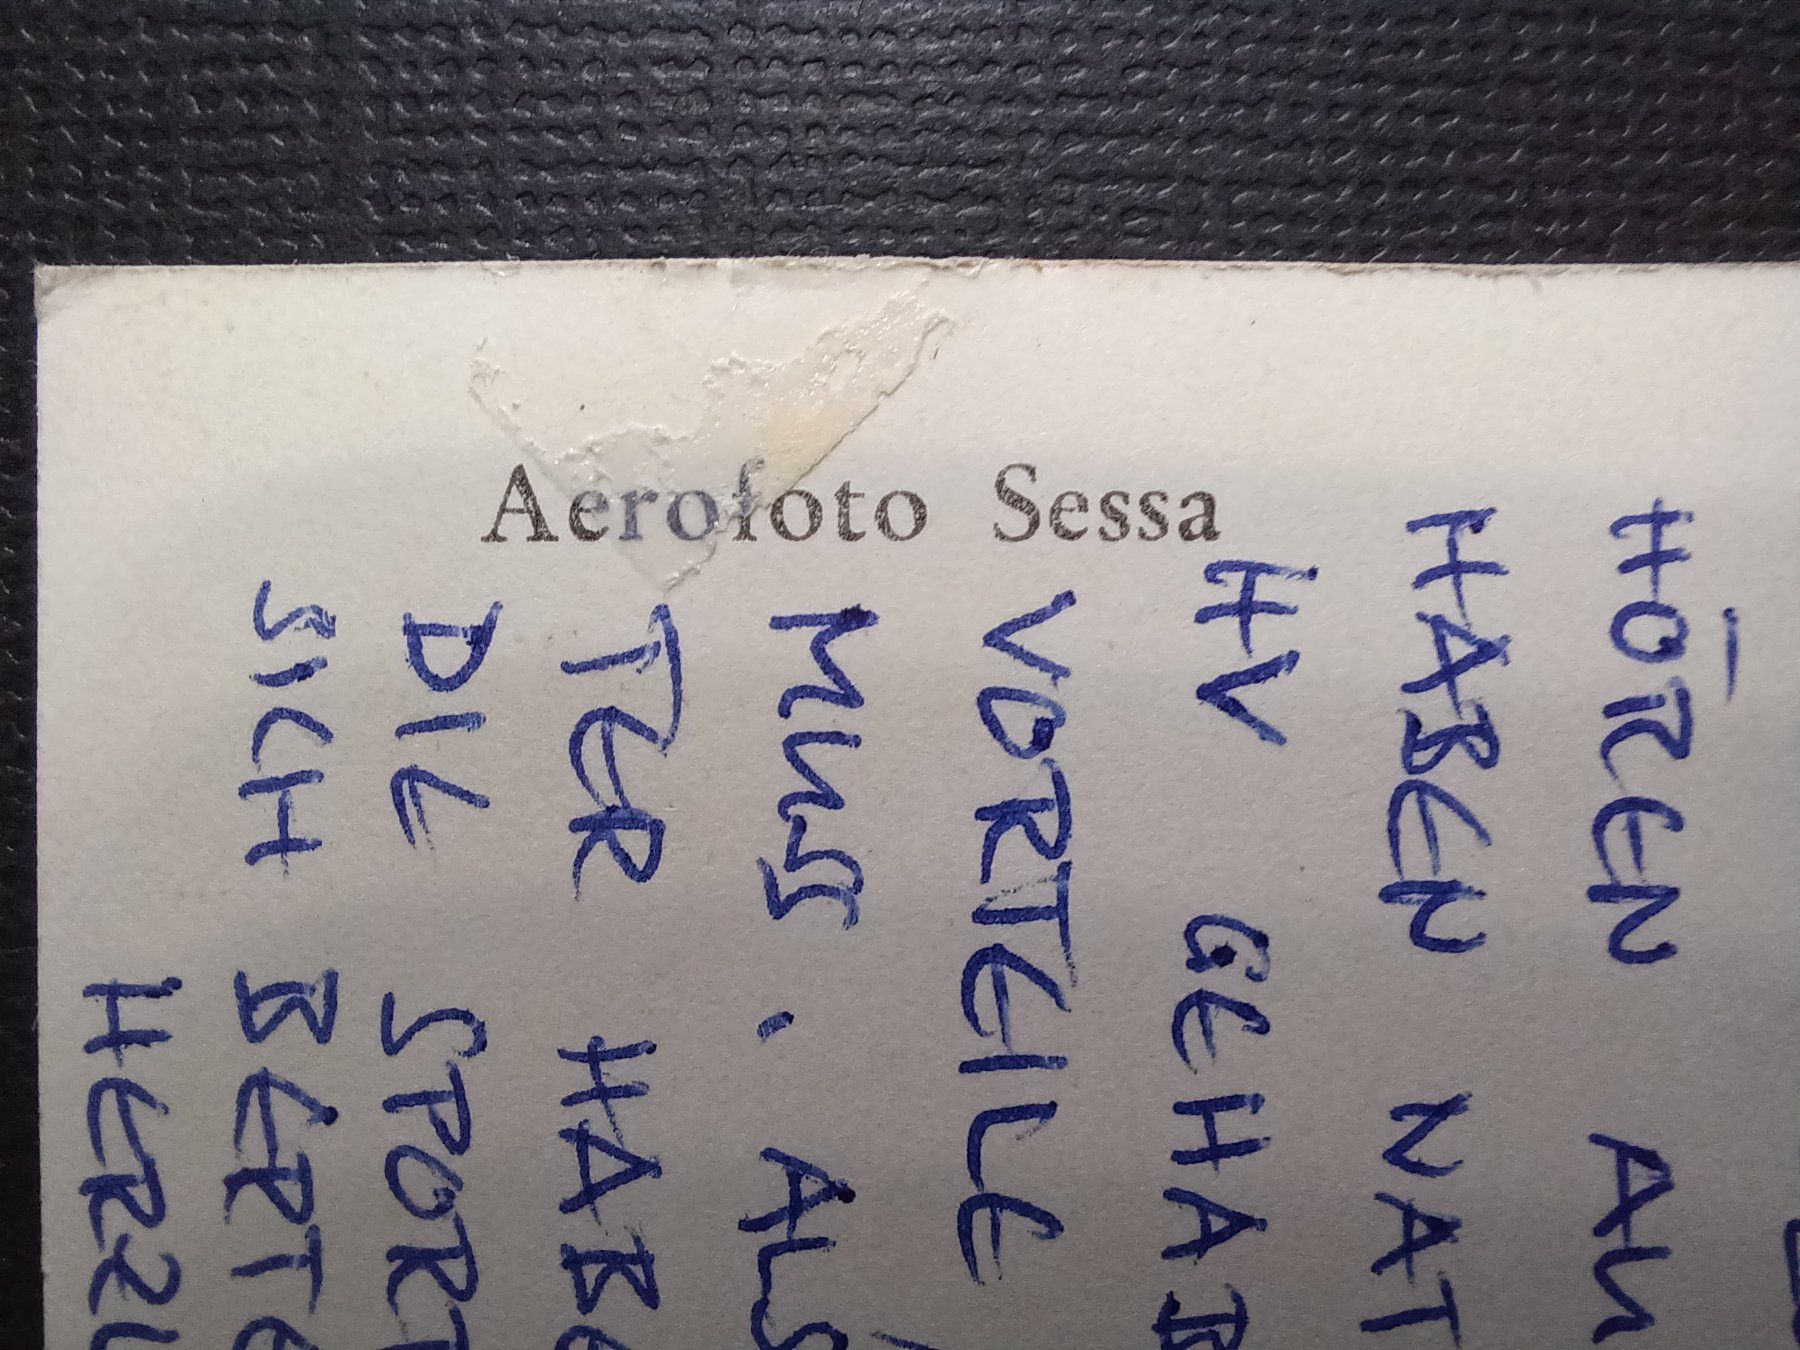 Aerofoto Sessa
HÖREN AU
HABEN NAT
HV GEHAB
VORTEILE
MUSS. ALS
TER HABE
DIE SPORT
SICH BERTE
HERZL